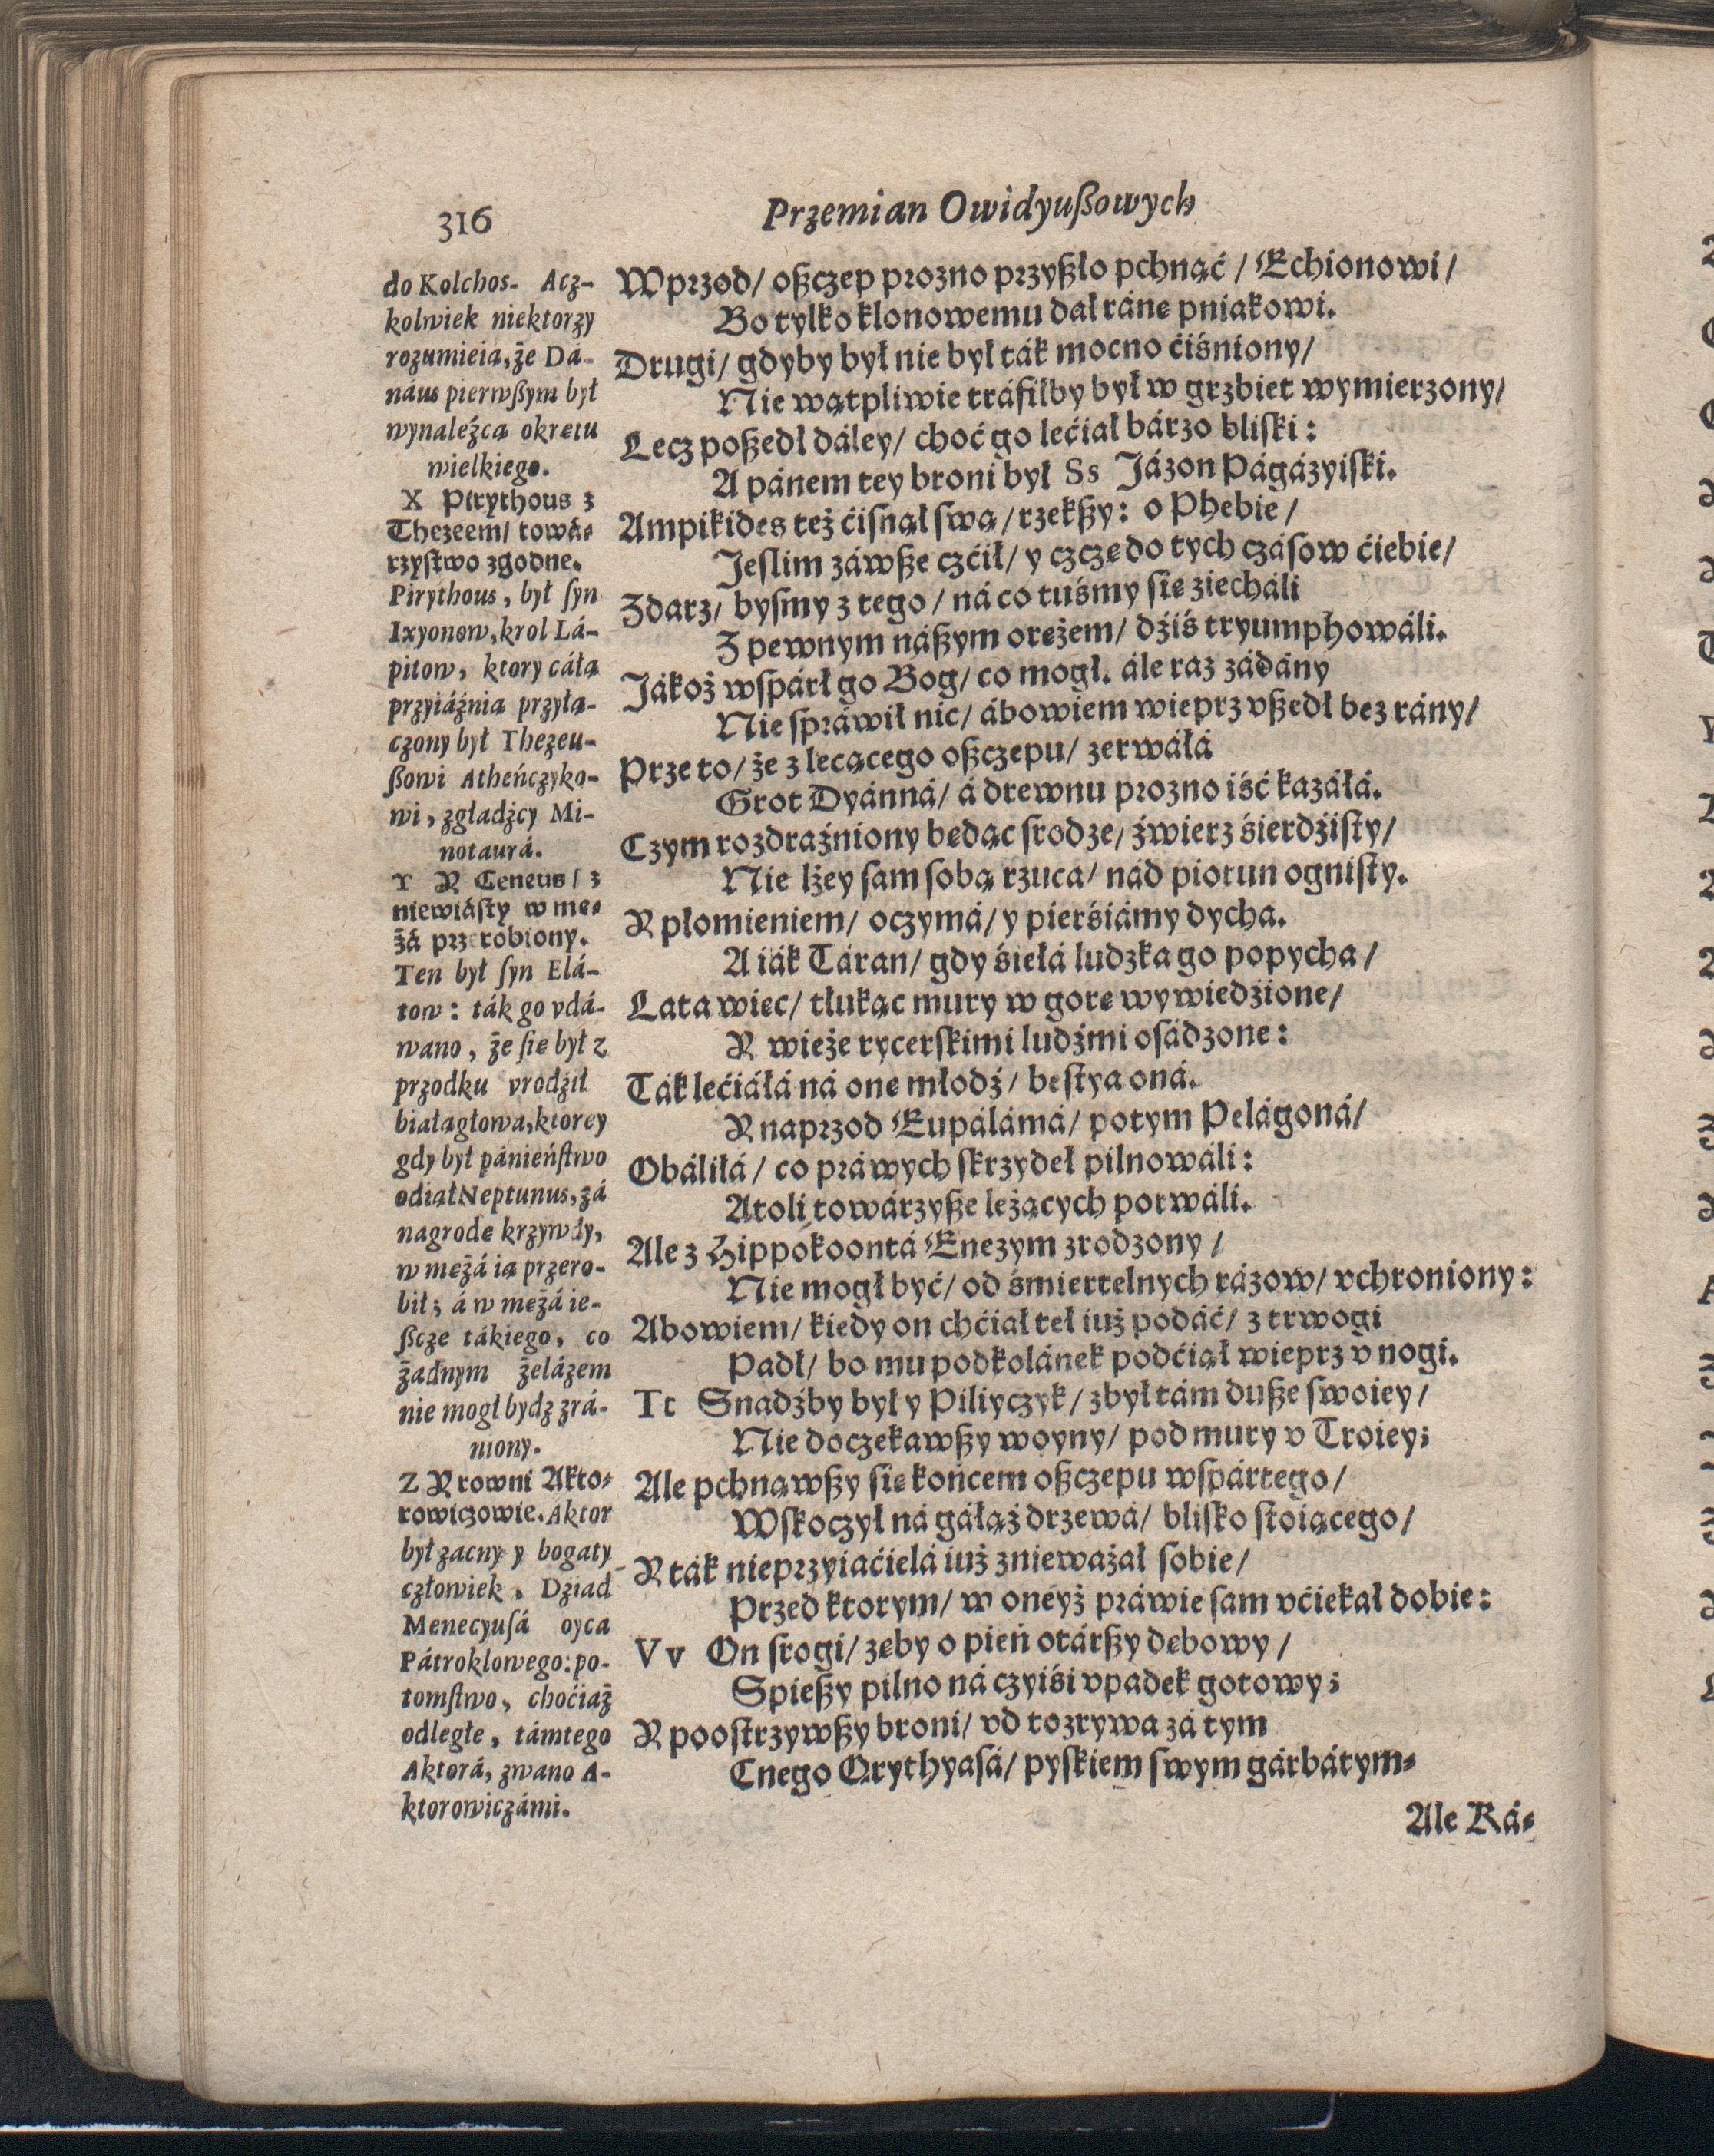 316
Przemian Owidyußowych
do Kolchos. Acz-
kolwiek niektorzy
rozumieią, że Dá-
náus pierwßym był
wynaleźcą okrętu
wielkiego.
X Pirythous z
Thezeem/ towá-
rzystwo zgodne.
Pirythous, był syn
Ixyonow, krol Lá-
pitow, ktory cáłą
przyiáźnią przyłą-
czony był Thezeu-
ßowi Atheńczyko-
wi, zgładźcy Mi-
notaurá.
Y Y Ceneus/ z
niewiásty w mę-
żá przerobiony.
Ten był syn Elá-
tow: ták go vdá-
wano, że się był z
przodku vrodził
białągłową, ktorey
gdy był pánieństwo
odiął Neptunus, zá
nagrodę krzywdy,
w mężá ią przero-
bił; á w mężá ie-
ßcze tákiego, co
żadnym żelázem
nie mogł bydź zrá-
niony.
Z Y rowni Akto-
rowiczowie. Aktor
był zacny y bogaty
człowiek. Dziad
Menecyusá oycá
Pátroklowego: po-
tomstwo, choćiaż
odległe, támtego
Aktorá, zwano A-
ktorowiczámi.
Wprzod/ oßczep prozno przyßło pchnąć/ Echionowi/
Bo tylko klonowemu dał ránę pniakowi.
Drugi/ gdyby był nie był ták mocno ćiśniony/
Nie wątpliwie tráfiłby był w grzbiet wymierzony/
Lecz poßedł dáley/ choć go lećiał bárzo bliski:
A pánem tey broni był Ss Jázon Págázyiski.
Ampikides też ćisnął swą/ rzekßy: o Phebie/
Jeslim záwße czćił/ y czczę do tych czásow ćiebie/
Zdarz/ bysmy z tego/ ná co tuśmy się ziecháli
Z pewnym náßym orężem/ dźiś tryumphowáli.
Jákoż wspárł go Bog/ co mogł. ále raz zádány
Nie spráwił nic/ ábowiem wieprz vßedł bez rány/
Prze to/ że z lecącego oßczepu/ zerwáłá
Grot Dyánná/ á drewnu prozno iść kazáłá.
Czym rozdraźniony będąc srodze/ źwierz śierdźisty/
Nie lżey sam sobą rzuca/ nád piorun ognisty.
Y płomieniem/ oczymá/ y pierśiámy dycha.
A iák Táran/ gdy śiełá ludzka go popycha/
Lata więc/ tłukąc mury w gorę wywiedźione/
Y wieże rycerskimi ludźmi osádzone:
Ták lećiáłá ná onę młodź/ bestya oná.
Y naprzod Eupálámá/ potym Pelágoná/
Obáliłá/ co práwych skrzydeł pilnowáli:
Atoli towárzyße leżących porwáli.
Ale z Hippokoontá Enezym zrodzony/
Nie mogł być/ od śmiertelnych rázow/ vchroniony:
Abowiem/ kiedy on chćiał teł iuż podáć/ z trwogi
Padł/ bo mu podkolánek podćiął wieprz v nogi.
Tt Snadźby był y Piliyczyk/ zbył tám duße swoiey/
Nie doczekawßy woyny/ pod mury v Troiey;
Ale pchnąwßy się końcem oßczepu wspártego/
Wskoczył ná gáłąź drzewá/ blisko stoiącego/
Y ták nieprzyiaćielá iuż znieważał sobie/
Przed ktorym/ w oneyż práwie sam vćiekał dobie:
Vv On srogi/ zęby o pień otárßy dębowy/
Spießy pilno ná czyiśi vpadek gotowy;
Y poostrzywßy broni/ vd rozrywa zá tym
Cnego Orythyasá/ pyskiem swym gárbátym.
Ale Ká-